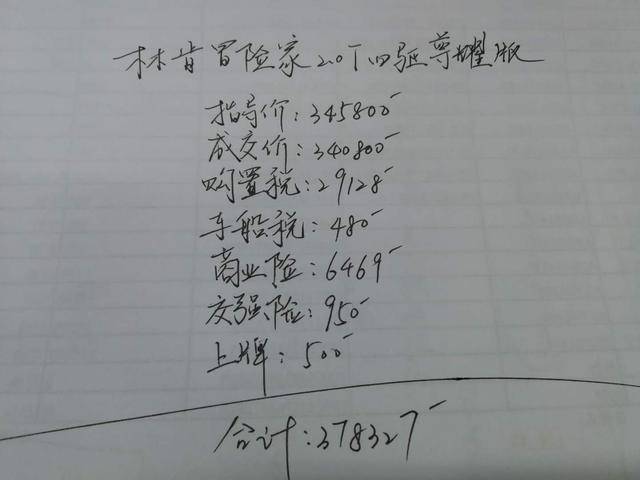 林肯冒险家2.0T四驱尊耀版
指导价:345800
成交价:340800
购置税:29128
车船税:480
商业险:6469
交强险:950
上牌:500
合计:378327